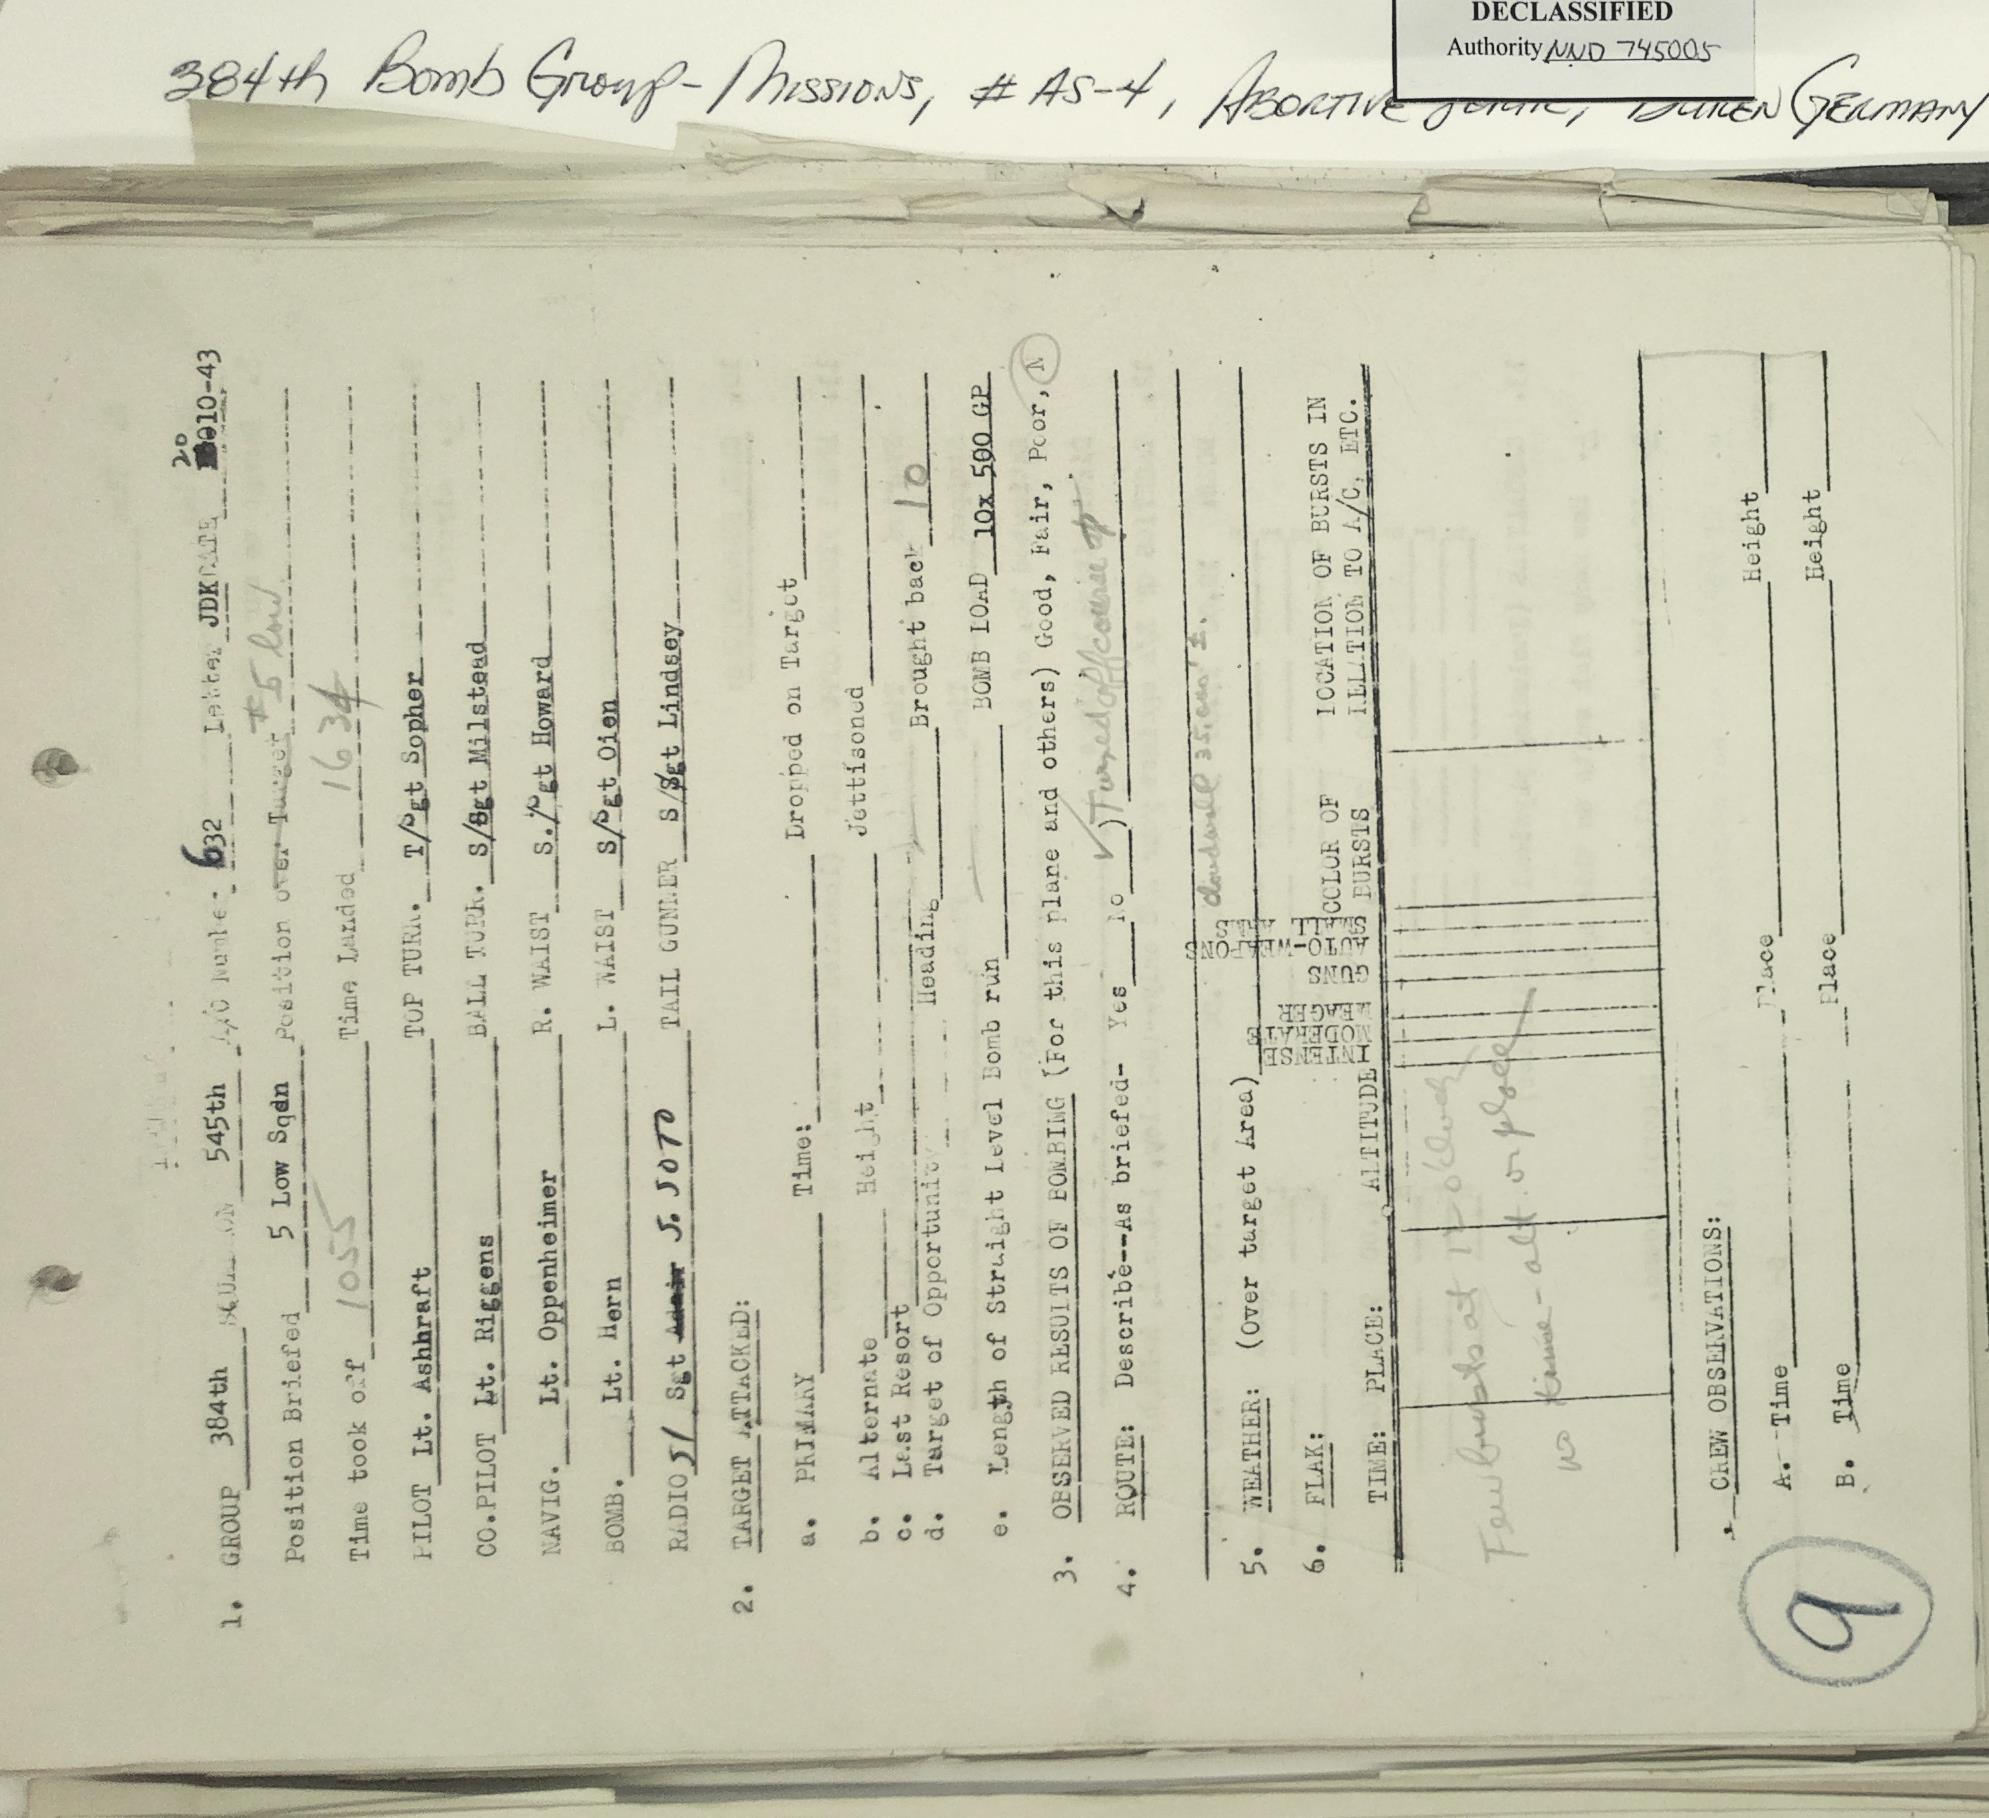 DECLASSIFIED
Authority NND 745005
384th Bomb Group - Missions, # AS-4, Abortive Sortie, Duren Germany
1. GROUP 384th SQUADRON 545th A/C Number 632 Letter JDK DATE 20 10-43
Position Briefed 5 Low Sqdn Position over Target #5 low
Time took off 1055 Time Landed 1634
PILOT Lt. Ashhraft TOP TURR. T/Sgt Sopher
CO.PILOT Lt. Riggens BALL TURR. S/Sgt Milstead
NAVIG. Lt. Oppenheimer R. WAIST S./Sgt Howard
BOMB. Lt. Hern L. WAIST S/Sgt Oien
RADIO S/ Sgt J. SOTO TAIL GUNNER S/Sgt Lindsey
2. TARGET ATTACKED:
a. PRIMARY Time: Dropped on Target
b. Alternate Height Jettisoned
c. Last Resort
d. Target of Opportunity Heading Brought back 10
e. Length of Straight Level Bomb run BOMB LOAD 10x 500 GP
3. OBSERVED RESULTS OF BOMBING (For this plane and others) Good, Fair, Poor, N
4. ROUTE: Describe--As briefed- Yes No √) Turned off course
cloudwall 35,000' ±.
5. WEATHER: (Over target Area)
6. FLAK:
TIME: PLACE: ALTITUDE INTENSE MODERATE MEAGER GUNS AUTO-WEAPONS SMALL ARMS COLOR OF BURSTS LOCATION OF BURSTS IN RELATION TO A/C, ETC.
Few bursts at 12 o'clock
no time - alt. or place
CREW OBSERVATIONS:
A. Time Place Height
B. Time Place Height
9